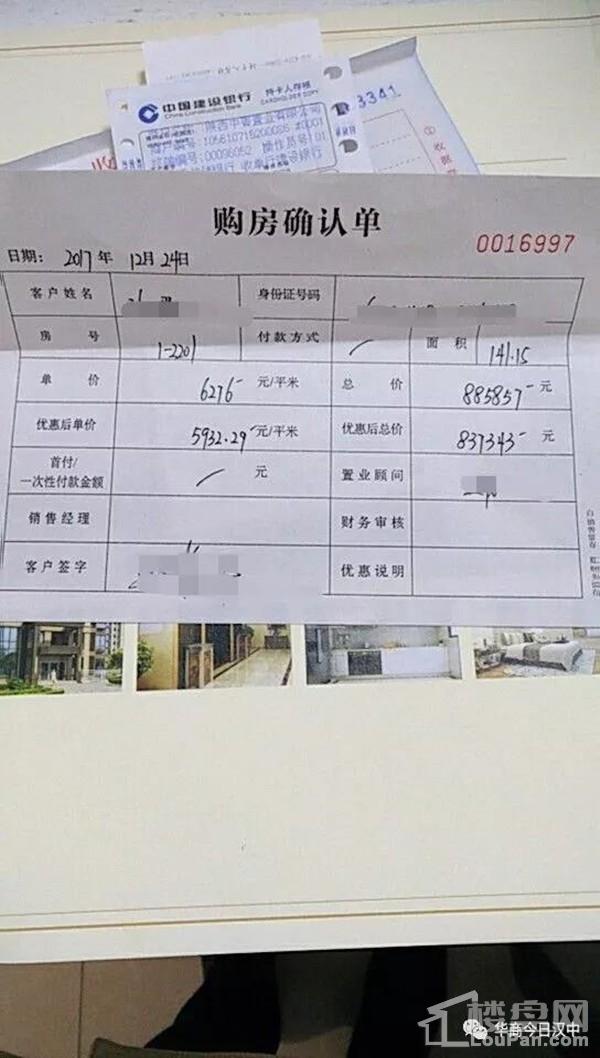 3341
中国建设银行
China Construction Bank
持卡人存根
CARDHOLDER COPY
操作员号:01
收单行建设银行
① 收据
购房确认单
0016997
日期: 2017年 12月 24日
客户姓名 身份证号码
房号 1-2201 付款方式 / 面积 141.15
单价 6276 元/平米 总价 885857 元
优惠后单价 5932.29 元/平米 优惠后总价 837343 元
首付/
一次性付款金额 / 元 置业顾问
销售经理 财务审核
客户签字 优惠说明
华商今日汉中
楼盘网
LouPan.com